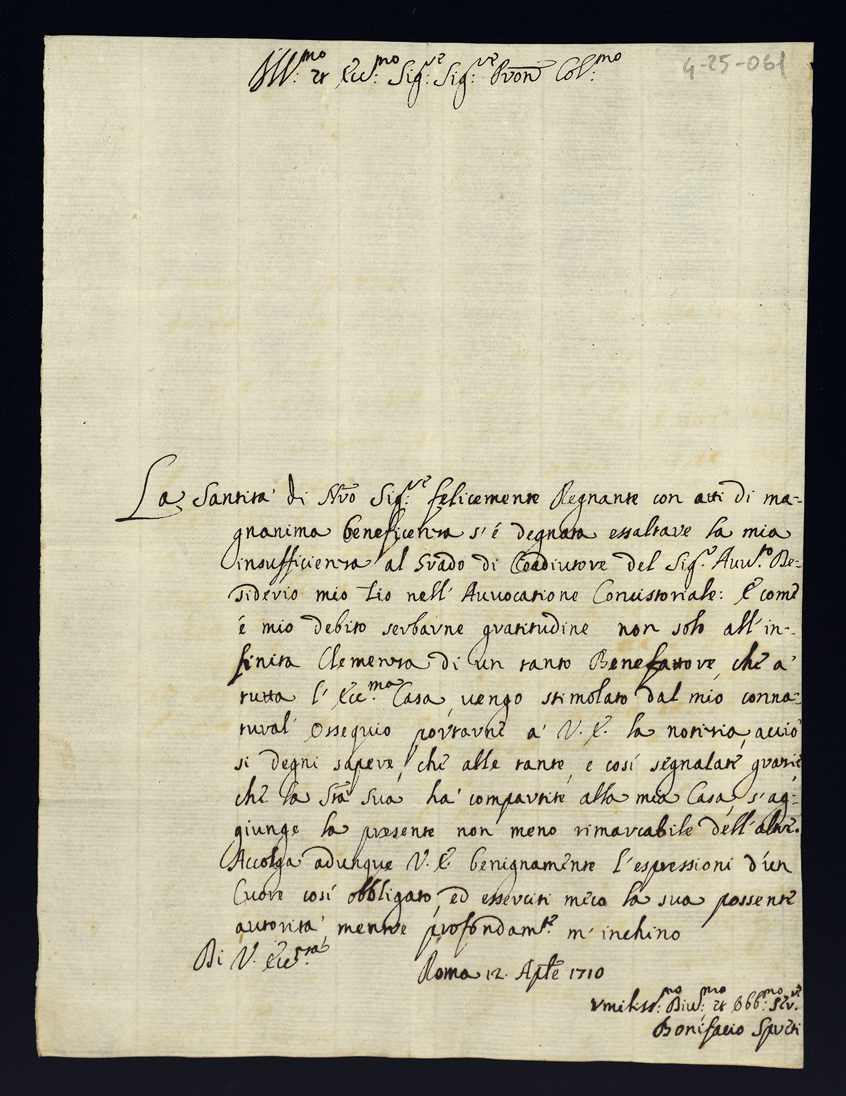 Ill.mo et Ecc.mo Sig.re Sig.re Pron Col.mo
4-25-061
La Santità di Nro Sig.re felicemente Regnante con atti di ma-
gnanima beneficenza s'è degnata essaltare la mia
insufficienza al Grado di Coadiutore del Sig.r Avv.to De-
siderio mio Zio nell'Avvocatione Concistoriale: E come
è mio debito serbarne gratitudine non solo all'in-
finita Clemenza di un tanto Benefattore, che a'
tutta l'Ecc.ma Casa, vengo stimolato dal mio conna-
tural' Ossequio portarne a' V. E. la notitia, acciò
si degni sapere, che alle tante, e così segnalate gratie,
che la Stà Sua hà compartite alla mia Casa, s'ag-
giunge la presente non meno rimarcabile dell'altre.
Accolga adunque V. E. benignamente l'espressioni d'un
Cuore così obbligato, ed esserciti meco la sua possente
autorità, mentre profondam.te m'inchino
Di V. Ecc.za
Roma 12. Aple 1710
Umiliss.mo Div.mo et Obb.mo Ser.re
Bonifacio Spreti